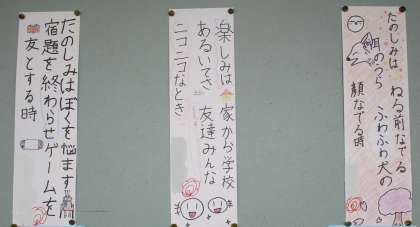 たのしみは ねる前なでる
ふわふわ犬の
顔なでる時
楽しみは 家から学校
あるいてさ 友達みんな
ニコニコなとき
たのしみはぼくを悩ます
宿題を終わらせゲームを
友とする時